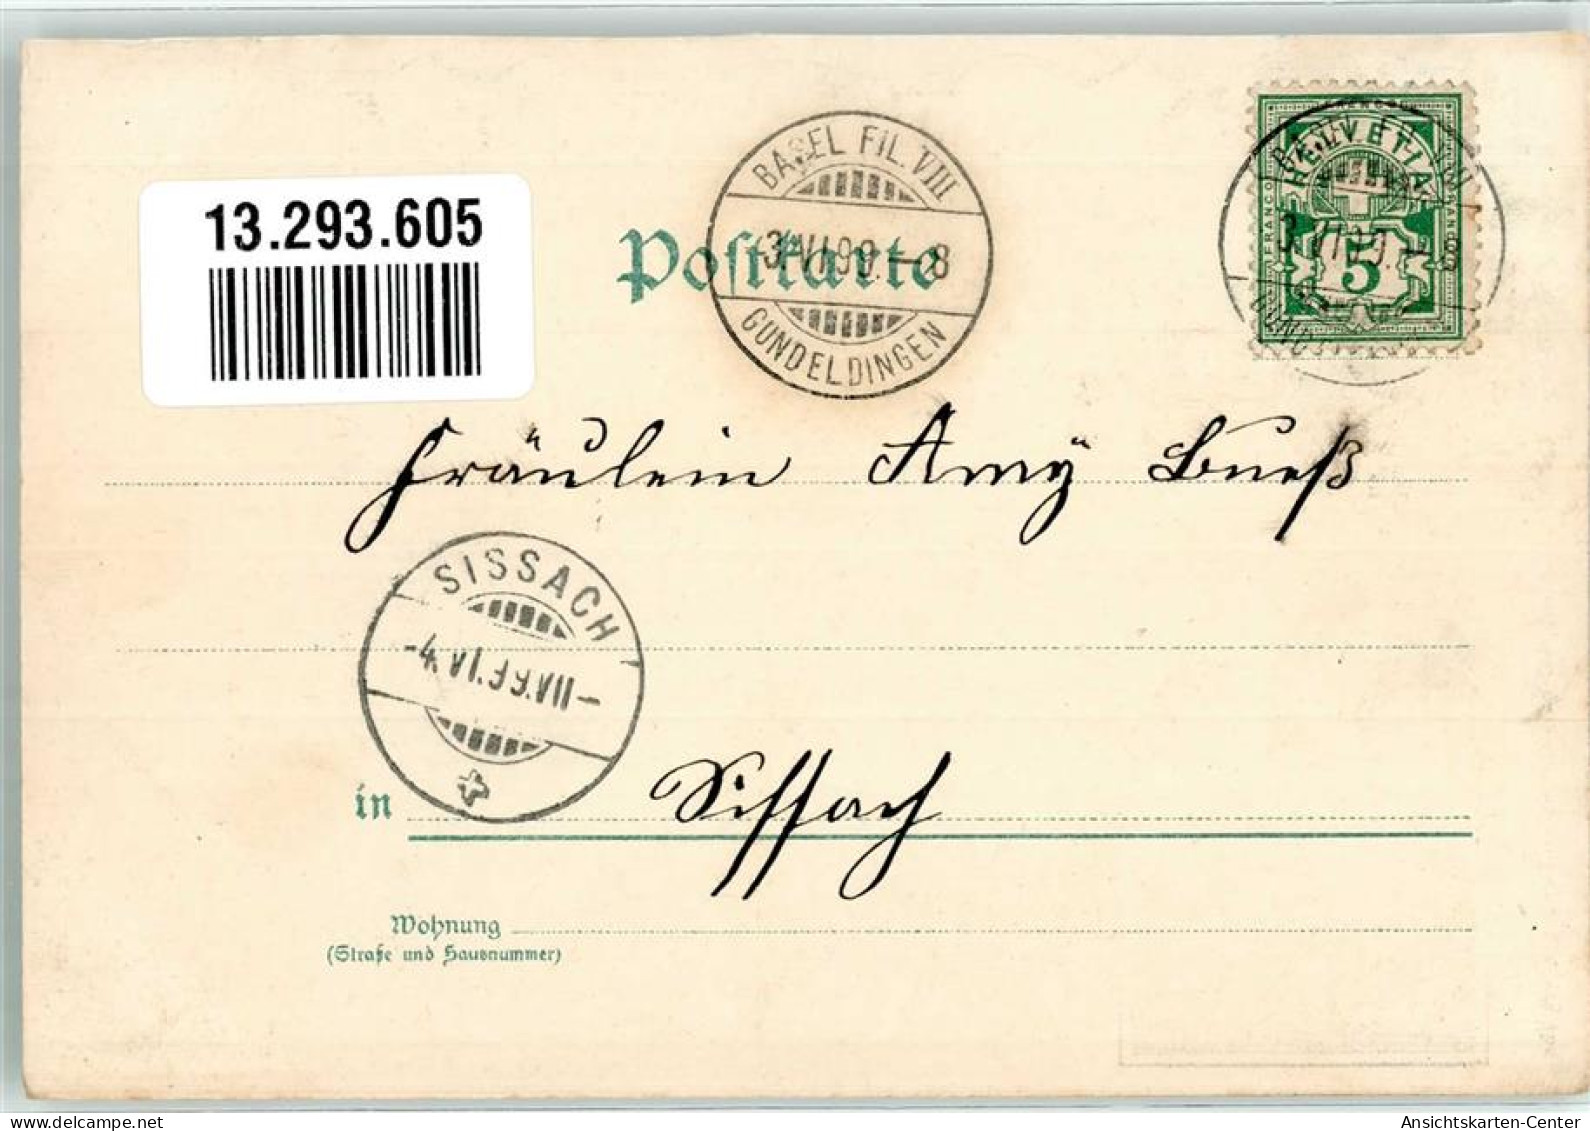 13.293.605
BASEL FIL. VIII
3. VI 99. – 8
GUNDELDINGEN
Postkarte
FRANCO
HELVETIA
5
3. VI 99. – 8
Fräulein Amÿ Bueß
SISSACH
-4. VI. 99. VII –
in Sissach
Wohnung
(Straße und Hausnummer)
AnsichtsKarten-Center